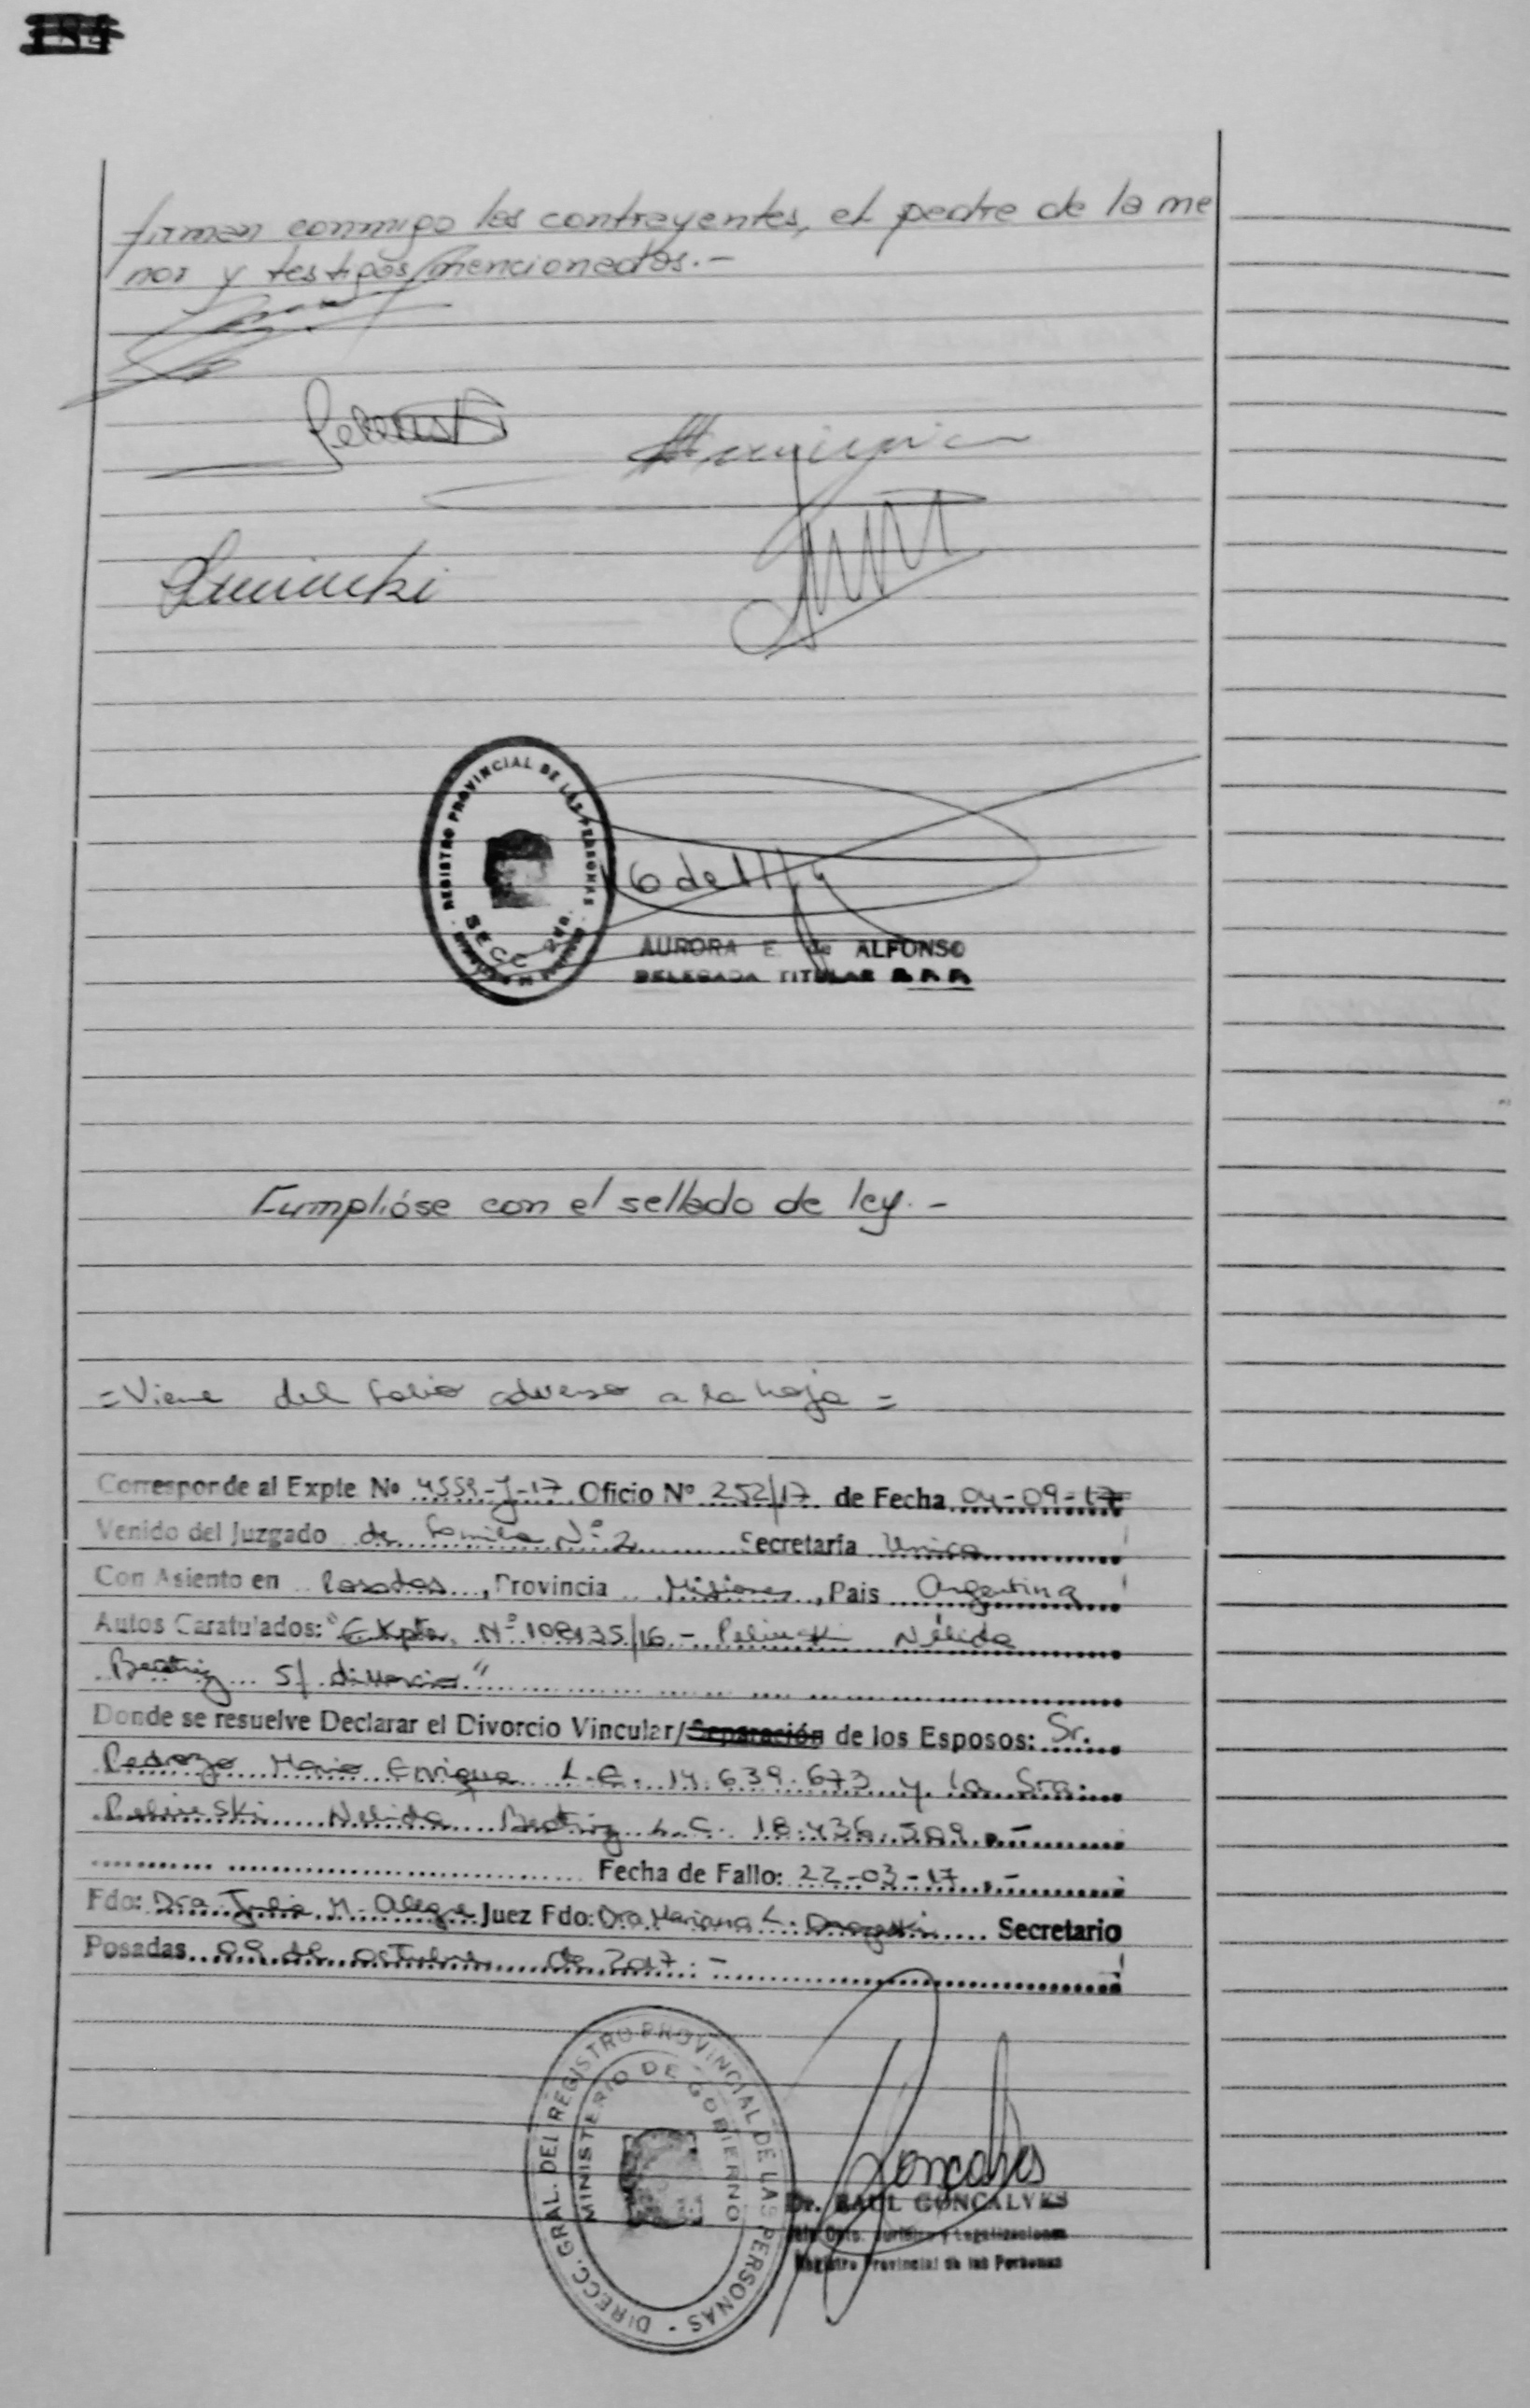 firman conmigo los contrayentes, el padre de la me
nor y testigos mencionados.-
REGISTRO PROVINCIAL DE LAS PERSONAS
SECC 2da.
AURORA E. de ALFONSO
DELEGADA TITULAR
Cumplióse con el sellado de ley.-
=Viene del folio adverso a la hoja=
Corresponde al Expte Nº 4559-J-17 Oficio Nº 252/17 de Fecha 04-09-17
Venido del Juzgado de Familia Nº 2 Secretaría Unica
Con Asiento en Posadas, Provincia Misiones, Pais Argentina
Autos Caratulados: "Expte. Nº 108135/16 - Pelinski Nélida
Beatriz s/ divorcio"
Donde se resuelve Declarar el Divorcio Vincular/Separación de los Esposos: Sr.
Pedrozo Mario Enrique L.C. 14.639.673 y la Sra.
Pelinski Nelida Beatriz L.C. 18.436.509.-
Fecha de Fallo: 22-03-17.-
Fdo: Dra Julia M. Alegre Juez Fdo: Dra Mariana L. Secretario
Posadas 09 de octubre de 2017.-
DIRECC. GRAL. DEL REGISTRO PROVINCIAL DE LAS PERSONAS -
MINISTERIO DE GOBIERNO
Goncalves
Dr. RAUL GONCALVES
Dpto. Jurídico y Legalizaciones
Registro Provincial de las Personas